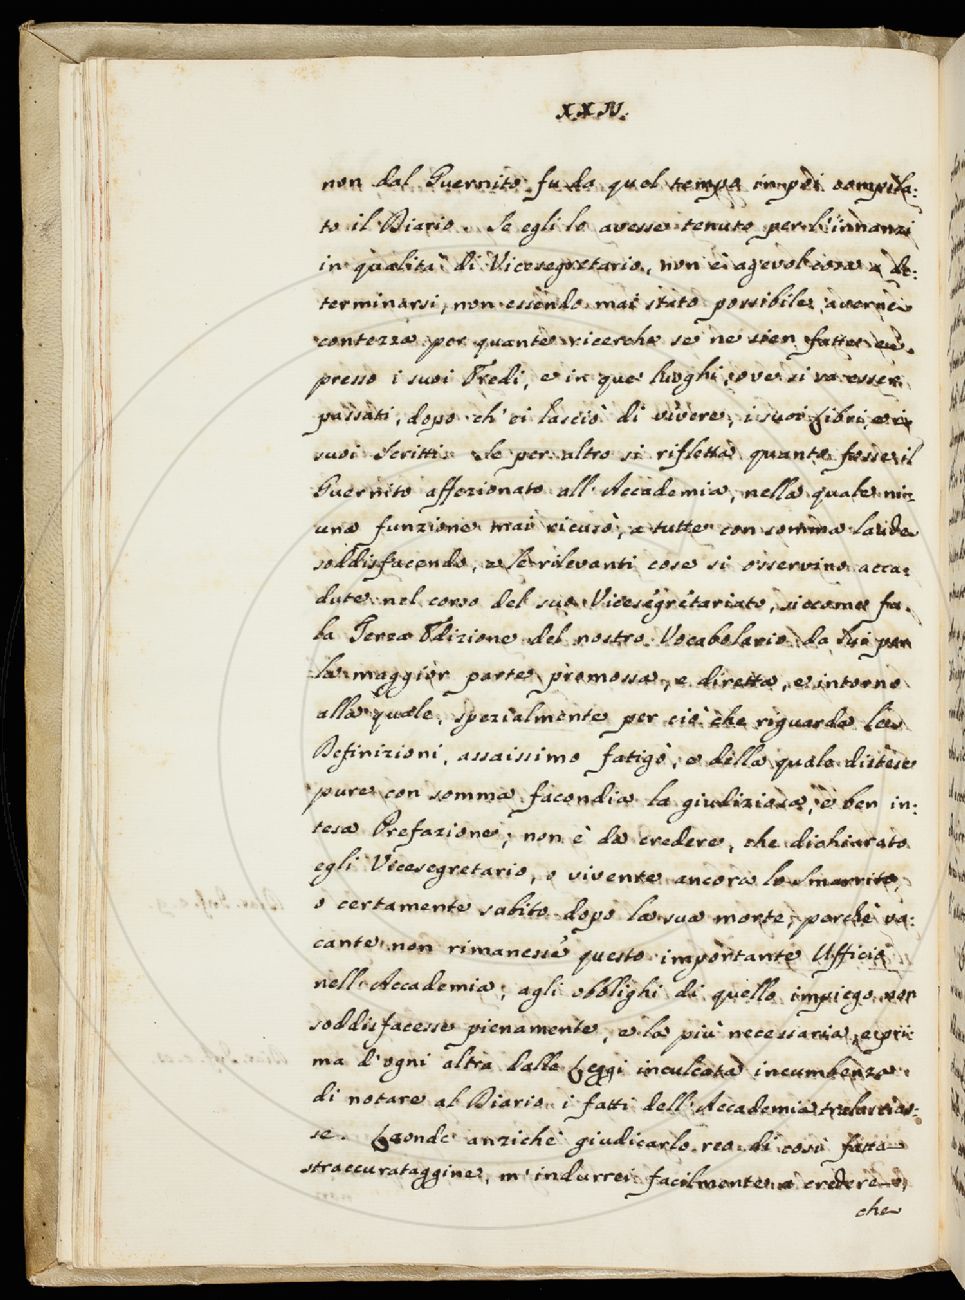 XXIV.
non dal Guernito fu da quel tempo in poi compila:
to il Diario. Se egli lo avesse tenuto per l'innanzi
in qualità di Vicesegretario, non è agevol cosa a de:
terminarsi, non essendo mai stato possibile averne
contezza per quante ricerche se ne sien fatte ap-
presso i suoi Eredi, e in que' luoghi, ove si va esser
passati, dopo ch' ei lasciò di vivere, i suoi Libri, e i
suoi Scritti. Se per altro si rifletta quanto fosse il
Guernito affezionato all' Accademia, nella quale niu-
una funzione mai ricusò, a tutte con somma laude
soddisfacendo, e le rilevanti cose si osservino acca:
dute nel corso del suo Vicesegretariato, siccome fu
la Terza Edizione del nostro Vocabolario da lui per
la maggior parte promossa, e diretta, e intorno
alla quale, spezialmente per ciò che riguarda le
Definizioni, assaissimo fatigò, e della quale distese
pure con somma facondia la giudiziosa, e ben in:
tesa Prefazione; non è da credere, che dichiarato
egli Vicesegretario, o vivente ancora lo Smarrito,
o certamente subito dopo la sua morte, perchè va:
cante non rimanesse questo importante Ufficio
nell' Accademia, agli obblighi di quello impiego non
soddisfacesse pienamente, e la più necessaria, e pri:
ma d'ogni altra dalle Leggi inculcata incumbenza
di notare al Diario i fatti dell' Accademia tralascias:
se. Laonde anzichè giudicarlo reo di così fatta
straccurataggine, m' indurrei facilmente a credere,
che